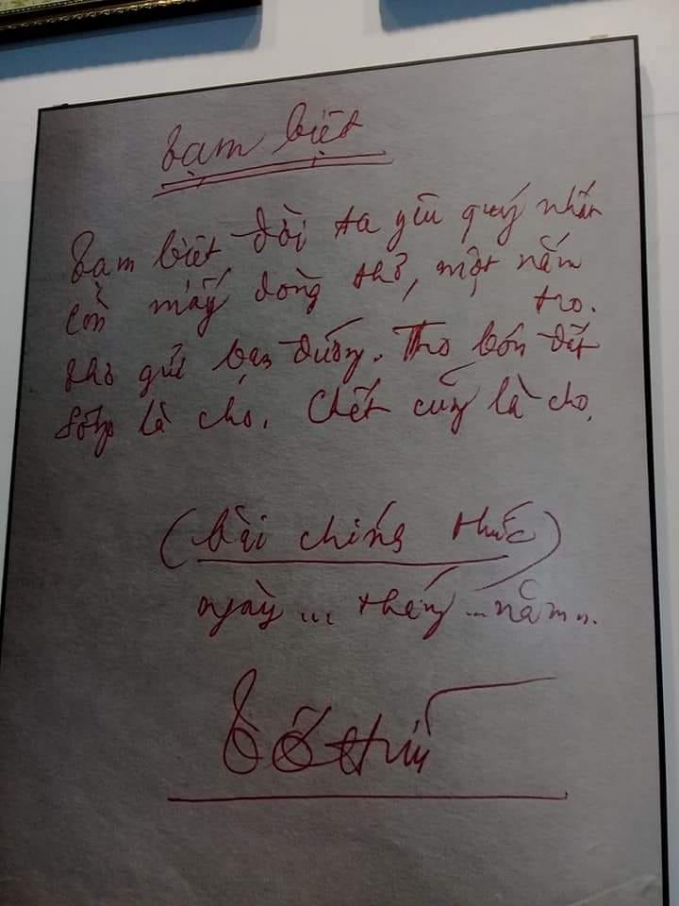 Tạm biệt
Tạm biệt đời ta yêu quý nhất
Còn mấy dòng thơ, một nắm tro.
Thơ gửi bạn đường. Tro bón đất
Sống là cho. Chết cũng là cho.
(bài chính thức)
ngày ... tháng ... năm ...
Tố Hữu